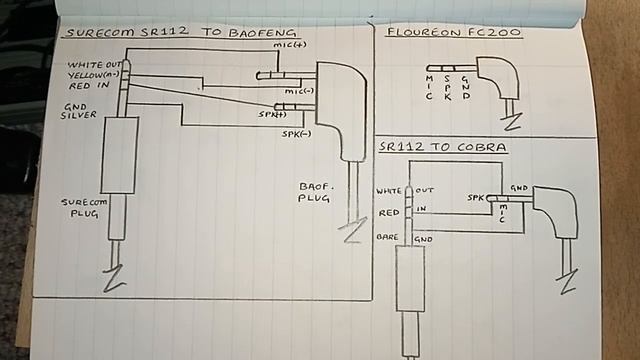 SURECOM SR112 TO BAOFENG
MIC(+)
WHITE OUT
YELLOW(M-)
RED IN
MIC(-)
SPK(+)
GND
SILVER
SPK(-)
SURECOM
PLUG
BAOF.
PLUG
FLOUREON FC200
MIC
SPK
GND
SR112 TO COBRA
WHITE OUT
SPK
GND
MIC
RED IN
BARE GND